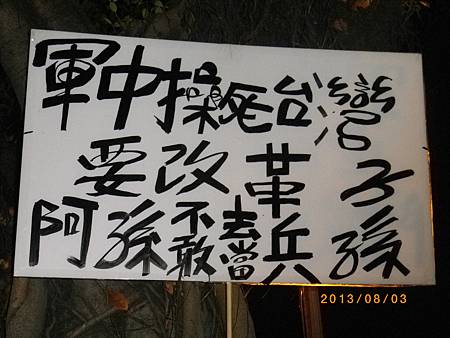 軍中操死台灣子孫
要改革
阿孫不敢去當兵
2013/08/03